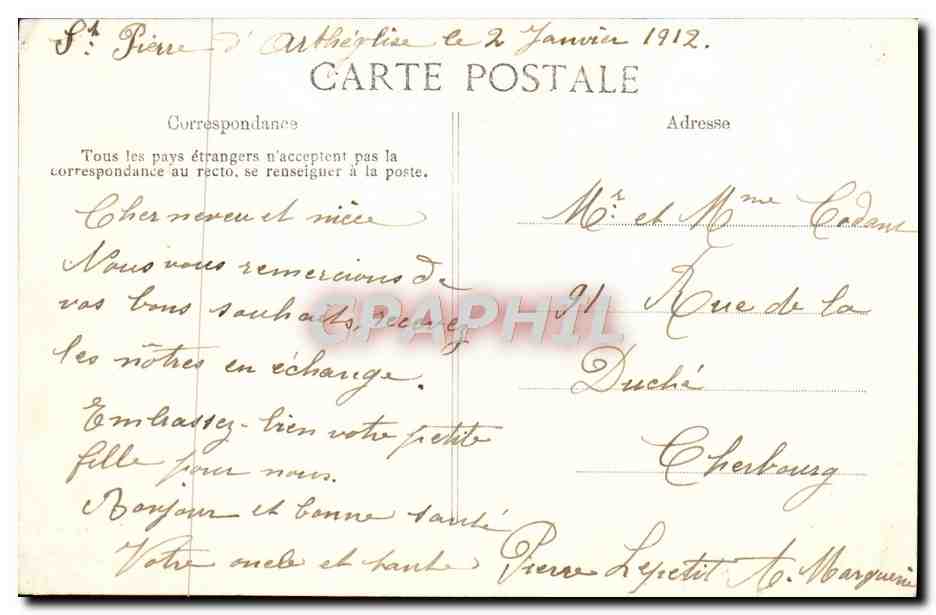 St. Pierre d'Arthéglise le 2 Janvier 1912.
CARTE POSTALE
Correspondance
Adresse
Tous les pays étrangers n'acceptent pas la
correspondance au recto, se renseigner à la poste.
Cher neveu et nièce
Nous vous remercions de
vos bons souhaits, recevez
les nôtres en échange.
Embrassez-bien votre petite
fille pour nous.
Bonjour et bonne santé
Votre oncle et tante Pierre Lepetit A. Marguerie
Mr. et Mme Codant
91 Rue de la
Duché
Cherbourg
CPAPHIL